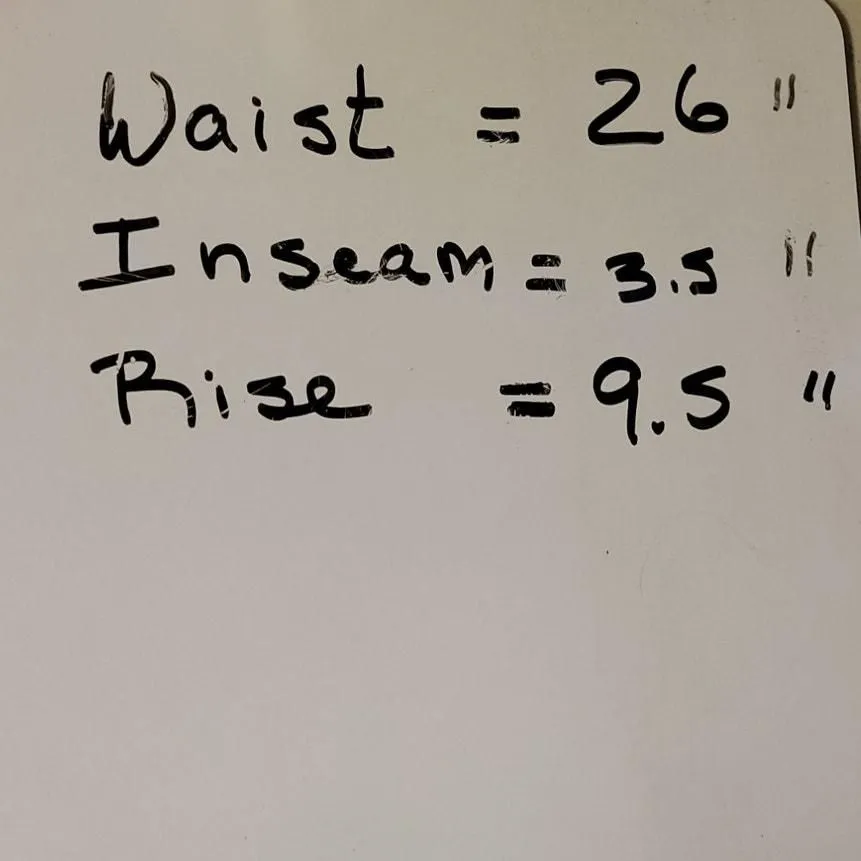 Waist = 26 "
Inseam = 3.5 "
Rise = 9.5 "